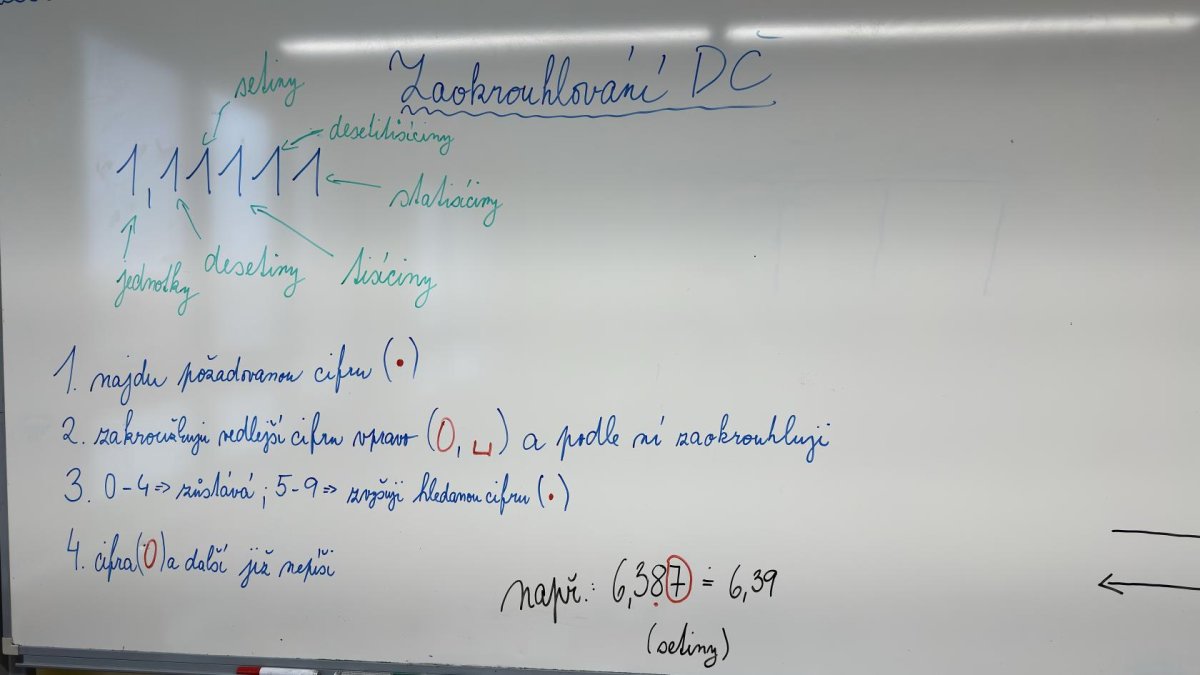 Zaokrouhlování DČ
setiny
desetitisíciny
1,11111
statisíciny
jednotky
desetiny
tisíciny
1. najdu požadovanou cifru (•)
2. zakroužkuji vedlejší cifru vpravo (O, ⌴) a podle ní zaokrouhluji
3. 0-4 => zůstává ; 5-9 => zvyšuji hledanou cifru (•)
4. cifra (O) a další již nepíši
např.: 6,387 ≐ 6,39
(setiny)